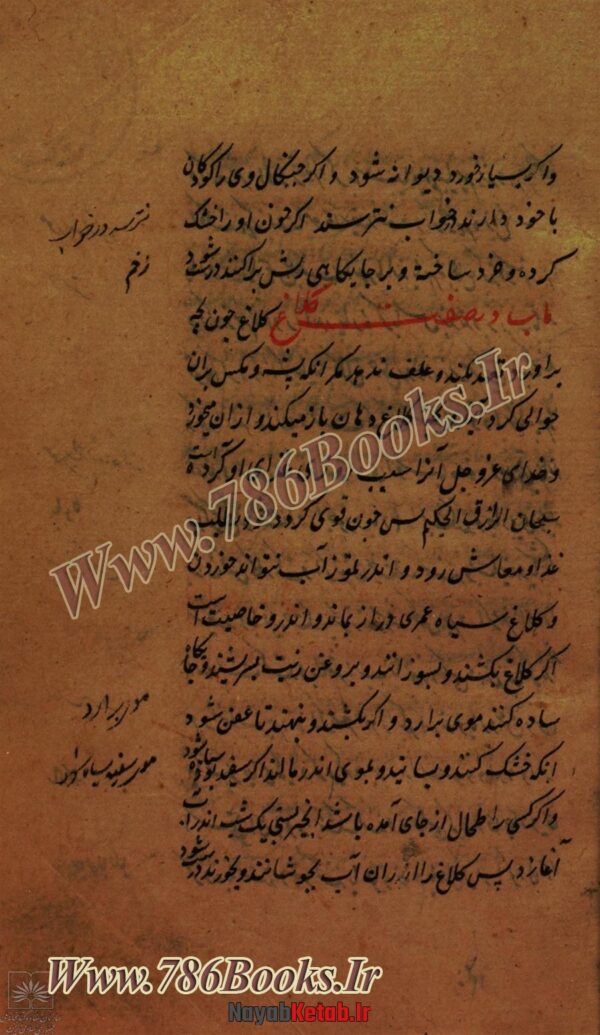 واکر بسیار خورد دیوانه شود واکر چنکال وی را کودکان
با خود دارند در خواب نترسند اکر خون او را خشک
نترسد در خواب
کرده و خرد ساخته و بر جایکاهی ریش پراکنند درست شود
زخم
باب در صفت کلاغ کلاغ چون بچه
براورد
کند و علف ندهد مکر انکه پشه و مکس بران
حوالی کرد
دهان باز میکند و ازان میخورد
و خدای عز و جل آنرا سبب
او کرده است
سبحان الرازق الحکیم پس چون قوی کردد
بطلب
غذا و معاش رود و اندر تموز آب نتواند خوردن
و کلاغ سیاه عمری دراز بماند و اندرو خاصیت است
اکر کلاغ بکشند و بسوزانند و بروغن زیت بسرشند و جایکاه
ساده کنند موی برارد و اکر بکشند و بنهند تا عفن شود
موی برارد
انکه خشک کنند و بسایند و بموی اندر مالند اکر سفید بود سیاه شود
موی سفید سیاه
واکر کسی را طحال از جای آمده باشد انجیر بستی یک شب اندر آب
آغازد پس کلاغ را اندران آب بجوشانند و بخورند درست شود
Www.786Books.Ir
Www.786Books.Ir
NayabKetab.Ir